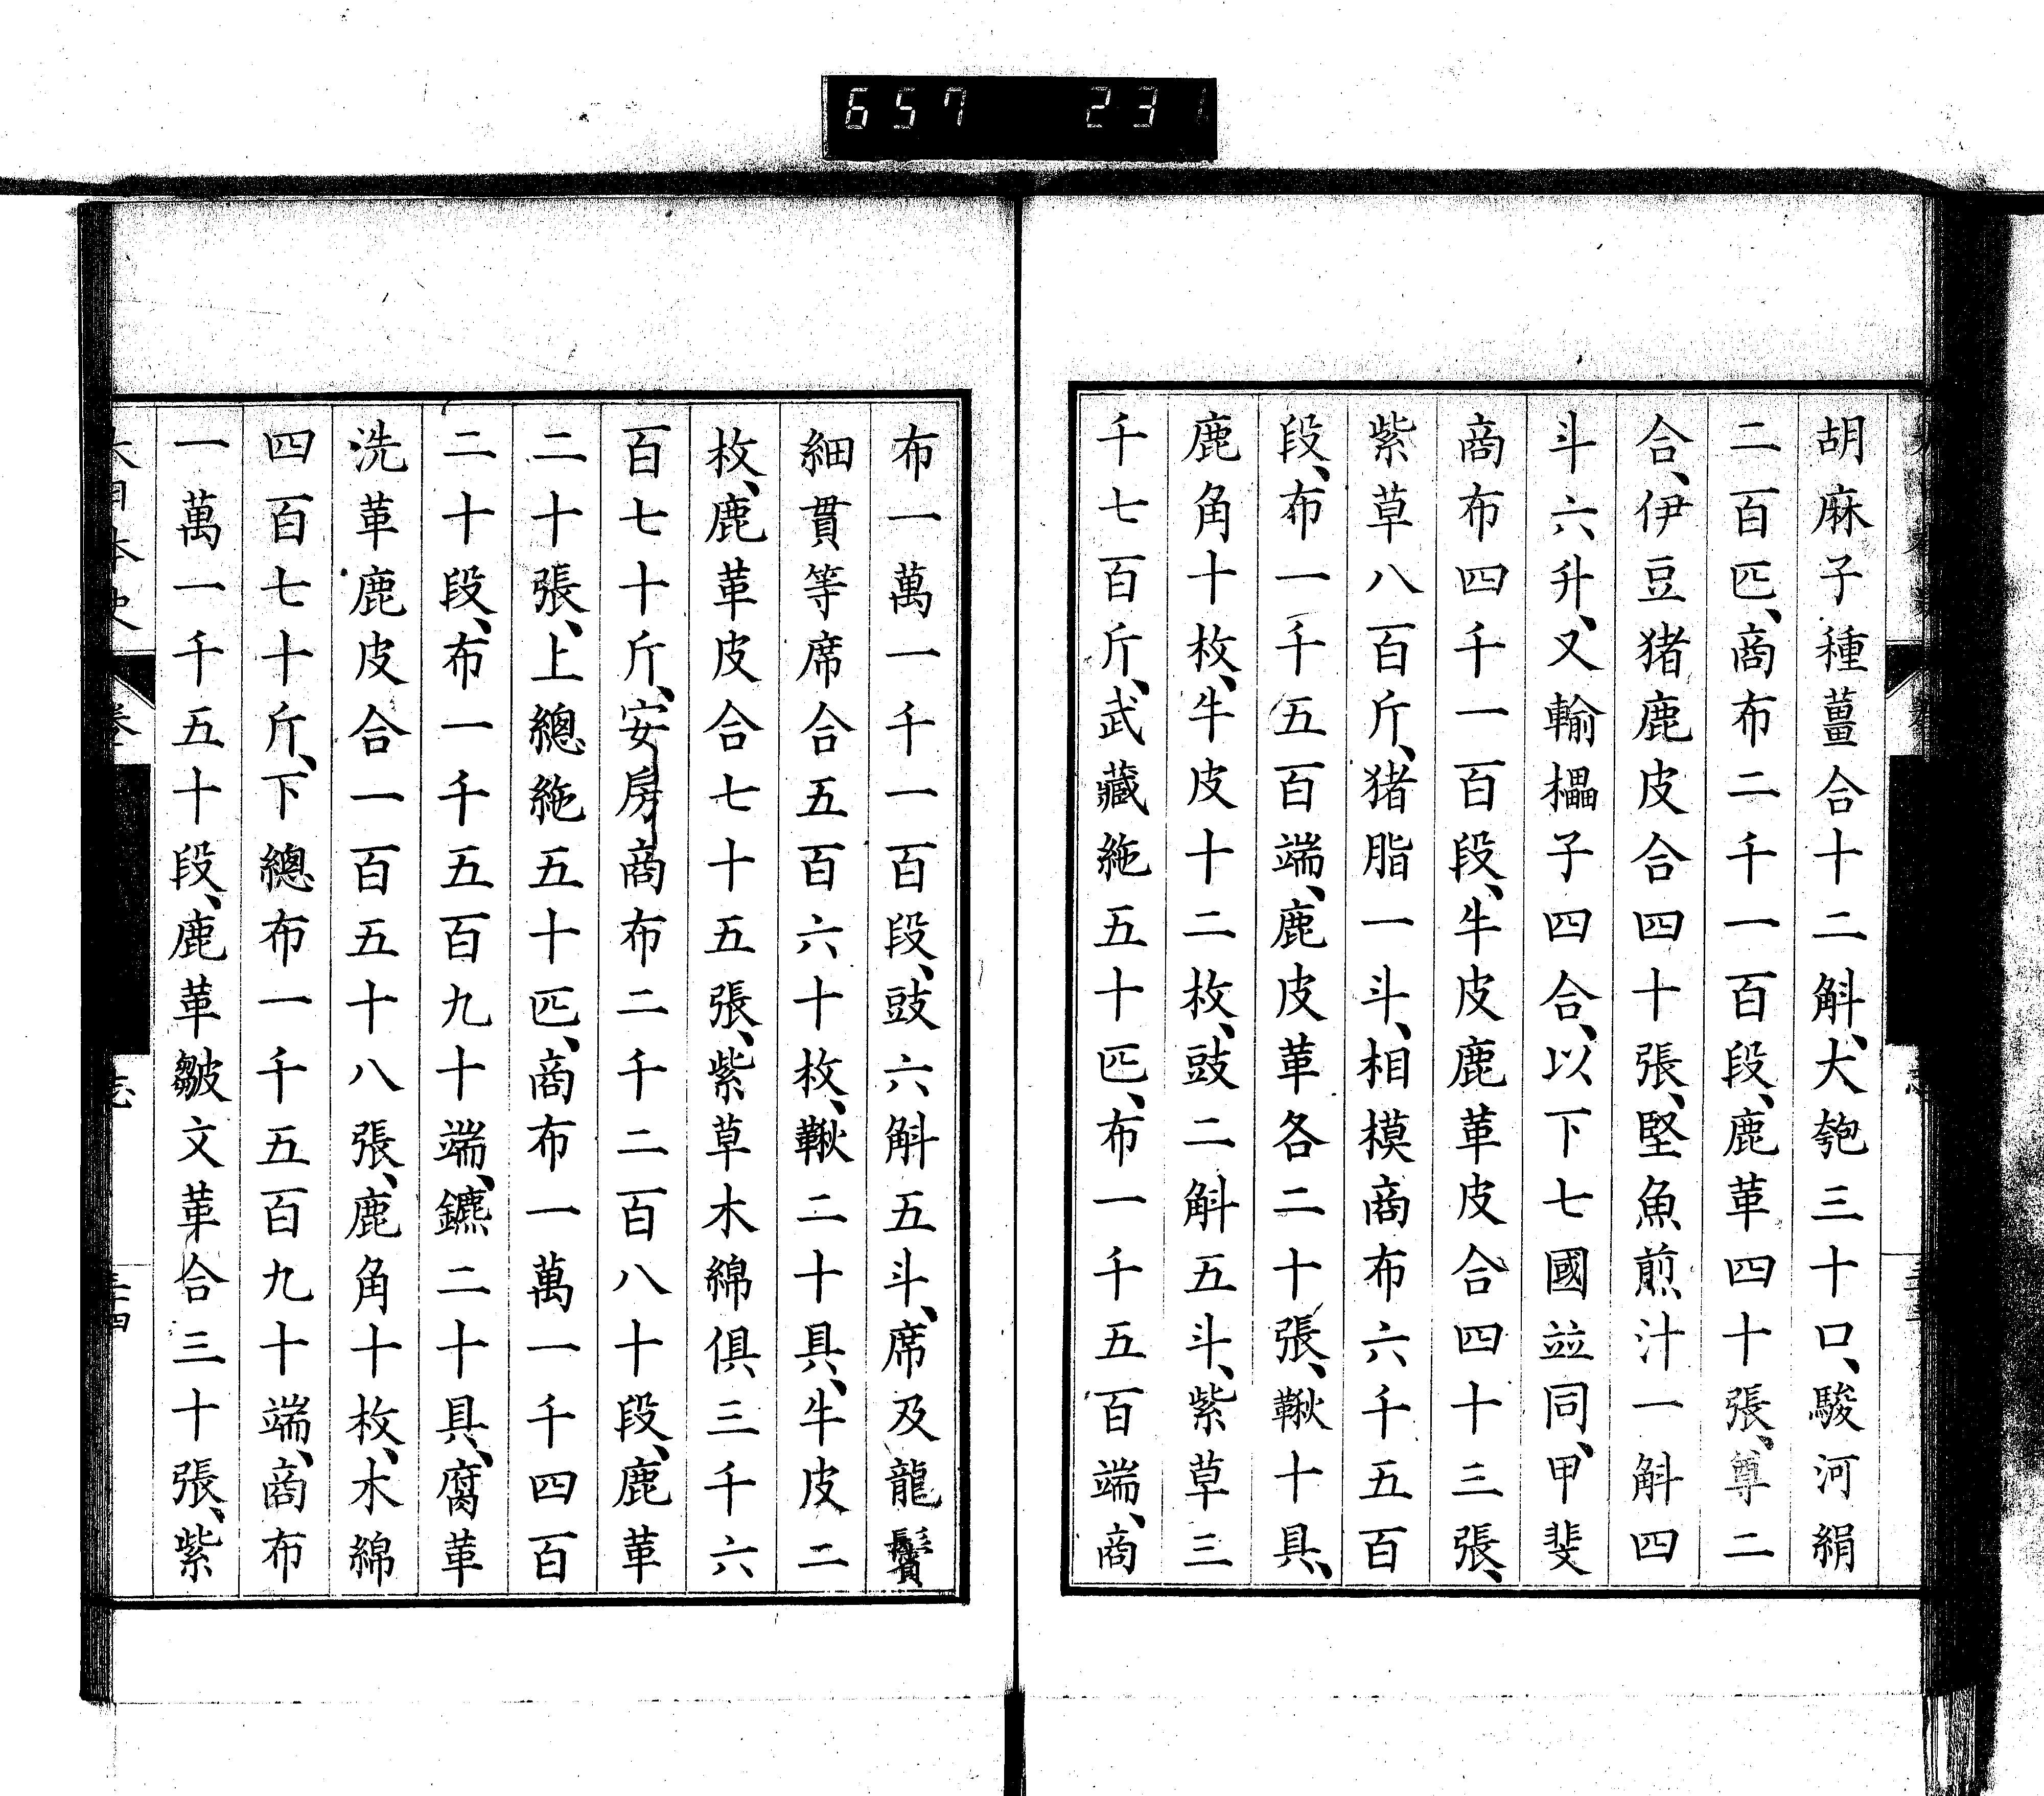 657 231
胡麻子種薑合十二斛、大匏三十口、駿河絹
二百匹、商布二千一百段、鹿革四十張、樽二
合、伊豆猪鹿皮合四十張、堅魚煎汁一斛四
斗六升、又輸櫑子四合、以下七國並同、甲斐
商布四千一百段、牛皮鹿革皮合四十三張、
紫草八百斤、猪脂一斗、相模商布六千五百
段、布一千五百端、鹿皮革各二十張、鞦十具、
鹿角十枚、牛皮十二枚、豉二斛五斗、紫草三
千七百斤、武藏絁五十匹、布一千五百端、商
布一萬一千一百段、豉六斛五斗、席及龍鬢
細貫等席合五百六十枚、鞦二十具、牛皮二
枚、鹿革皮合七十五張、紫草木綿俱三千六
百七十斤、安房商布二千二百八十段、鹿革
二十張、上總絁五十匹、商布一萬一千四百
二十段、布一千五百九十端、鑣二十具、腐革
洗革鹿皮合一百五十八張、鹿角十枚、木綿
四百七十斤、下總布一千五百九十端、商布
一萬一千五十段、鹿革皺文革合三十張、紫
大日本史 卷 志 三十四